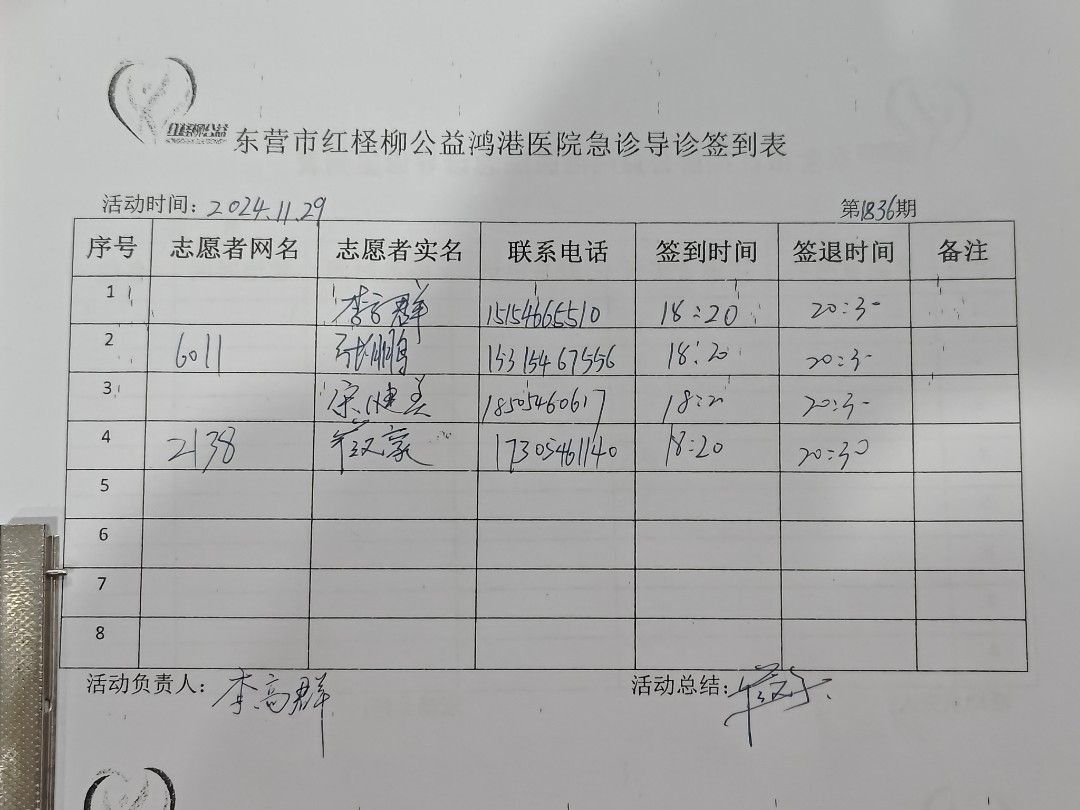 红柽柳公益
东营市红柽柳公益鸿港医院急诊导诊签到表
活动时间：2024.11.29 第1836期
序号 志愿者网名 志愿者实名 联系电话 签到时间 签退时间 备注
1 李高群 15154665510 18:20 20:3
2 6011 张鹏 15315467556 18:20 20:3
3 宋健美 18505460617 18:2 20:3
4 2138 17305461140 18:20 20:30
5
6
7
8
活动负责人：李高群 活动总结：